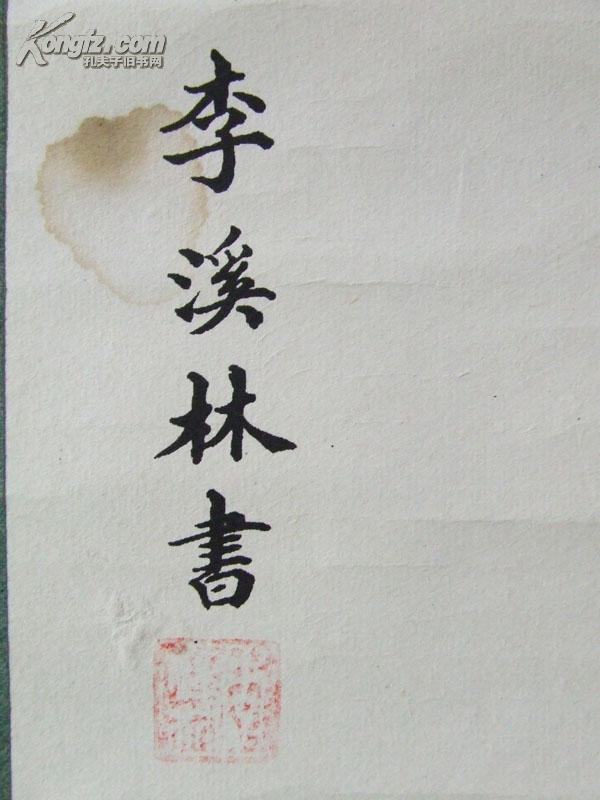 Kongfz.com
孔夫子旧书网
李溪林書